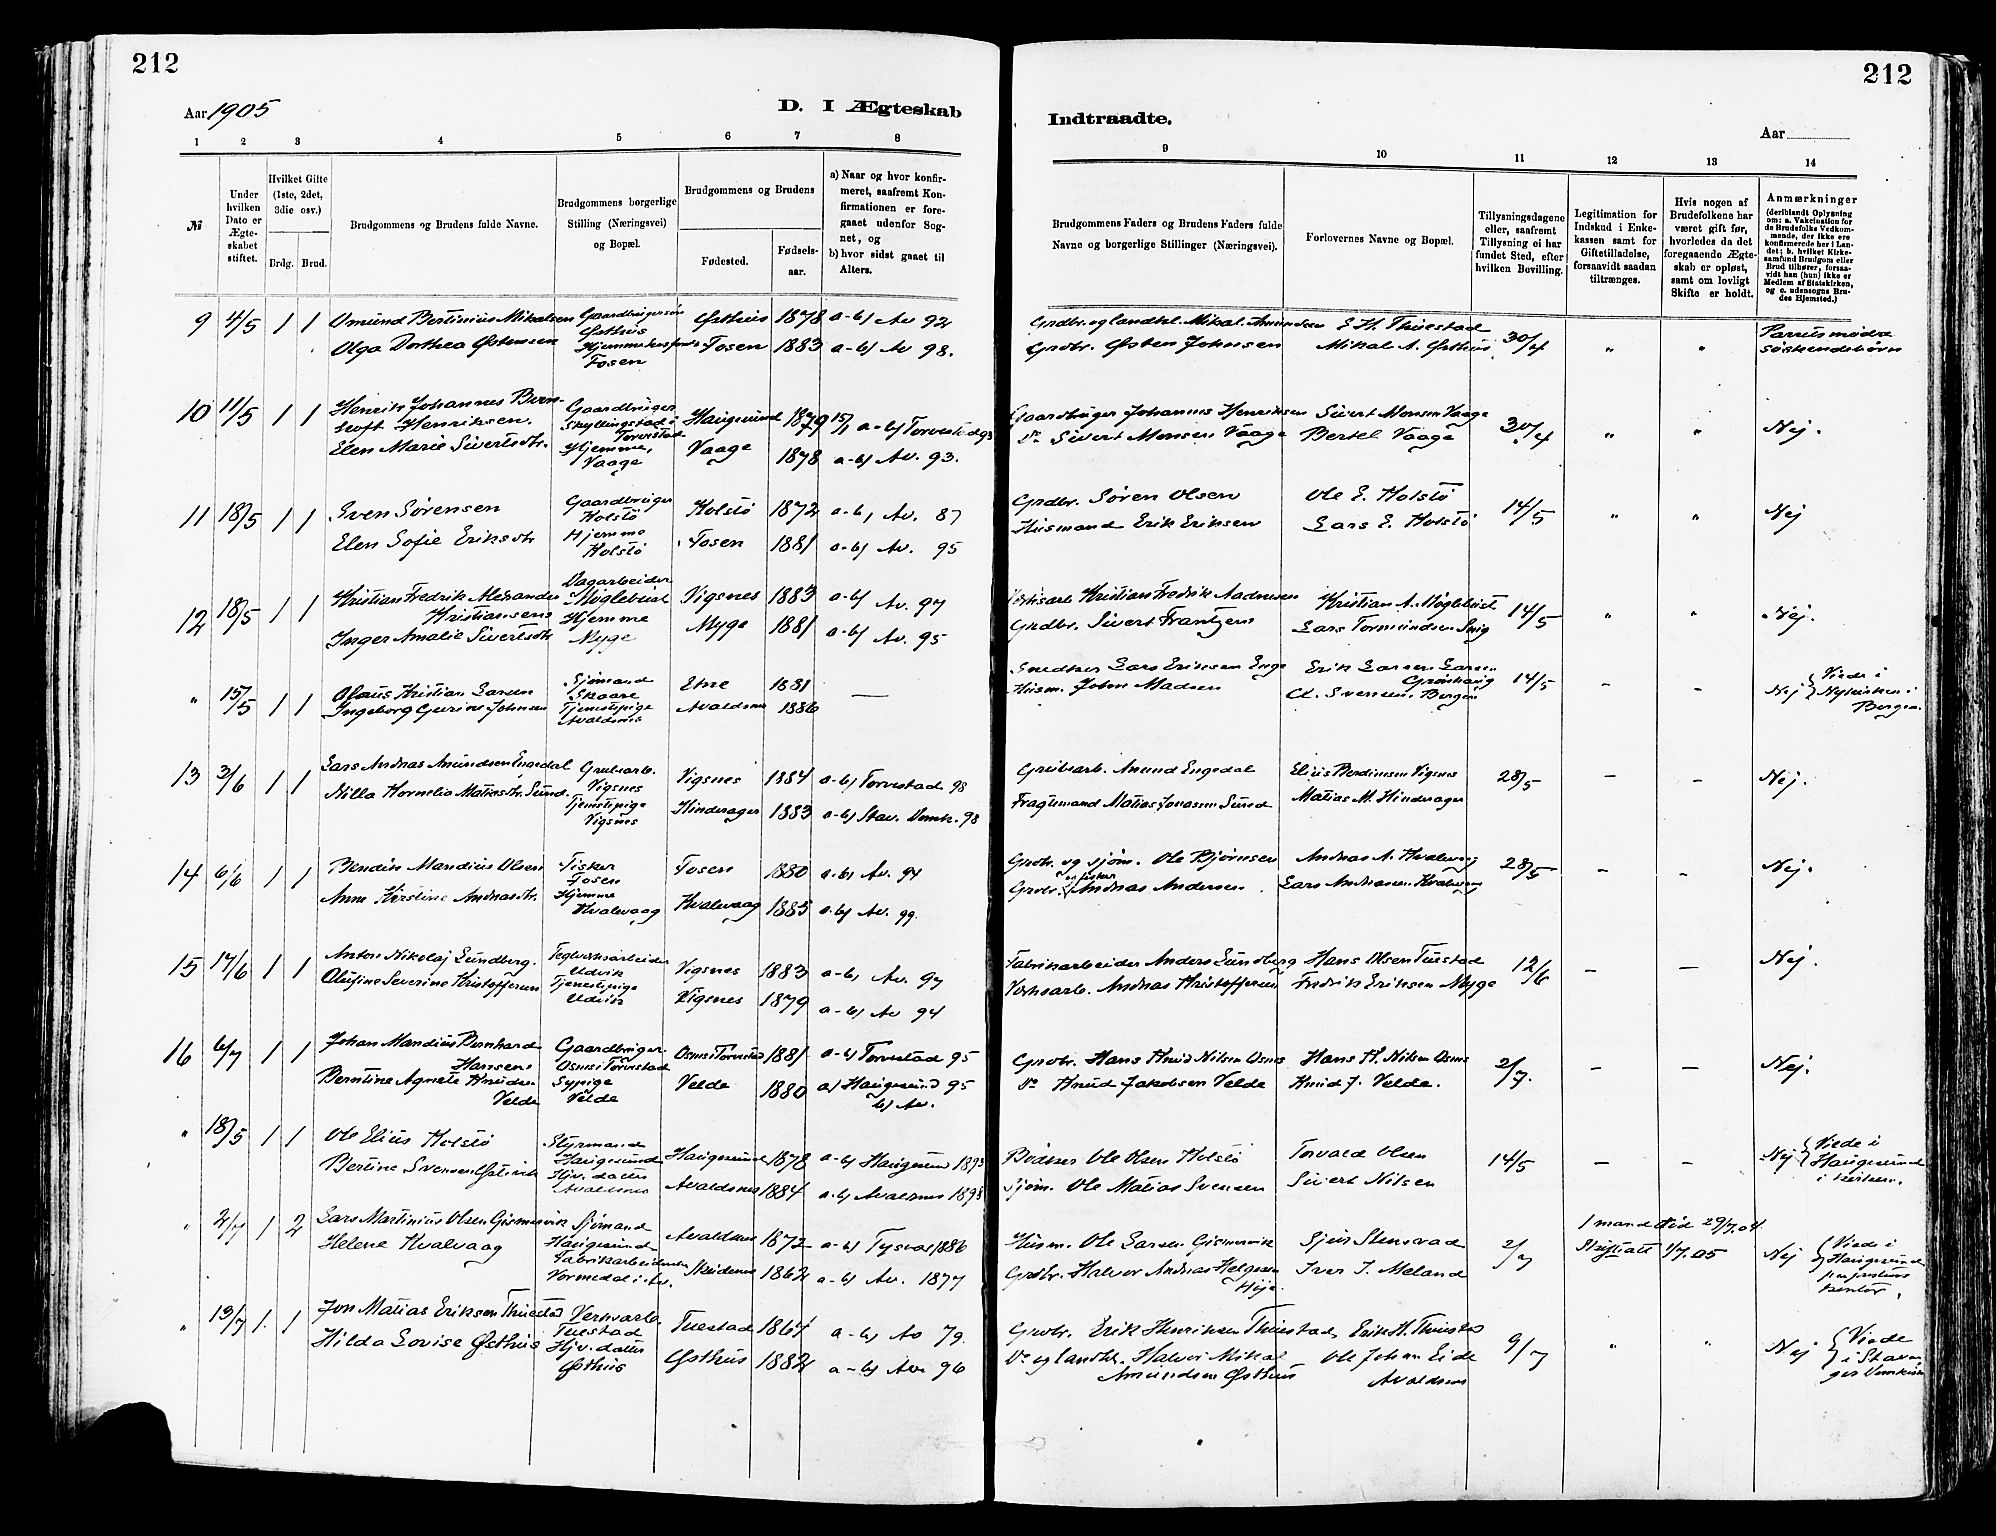 212
212
Aar 1905
D. I Ægteskab
Indtraadte.
Aar
1 2 3 4 5 6 7 8
9 10 11 12 13 14
№
Under hvilken Dato er Ægte-skabet stiftet.
Hvilket Gifte (1ste, 2det, 3die osv.)
Brdg. Brud.
Brudgommens og Brudens fulde Navne.
Brudgommens borgerlige Stilling (Næringsvei) og Bopæl.
Brudgommens og Brudens
Fødested.
Fødsels-aar.
a) Naar og hvor konfir-meret, saafremt Kon-firmationen er fore-gaaet udenfor Sog-net, og
b) hvor sidst gaaet til Alters.
Brudgommens Faders og Brudens Faders fulde Navne og borgerlige Stillinger (Næringsvei).
Forlovernes Navne og Bopæl.
Tillysningsdagene eller, saafremt Tillysning ei har fundet Sted, efter hvilken Bevilling.
Legitimation for Indskud i Enke-kassen samt for Giftetilladelse, forsaavidt saadan tiltrænges.
Hvis nogen af Brudefolkene har været gift før, hvorledes da det foregaaende Ægte-skab er opløst, samt om lovligt Skifte er holdt.
Anmærkninger
(deriblandt Oplysning om: a. Vakcination for de Brudefolks Vedkom-mende, der ikke ere konfirmerede her i Lan-det; b. hvilket Kirke-samfund Brudgom eller Brud tilhører, forsaa-vidt han (hun) ikke er Medlem af Statskirken, og c. udensogns Bru-des Hjemsted.)
9 4/5 1 1 Omund Bertinius Mikalsen Gaardbrugersøn Østhus Østhus 1878 a-b) Av 92 Grdbr. og landhl. Mikal Amundsen E H. Thuestad 30/4 " " Parrets mødre
Olga Dorthea Østensen Hjemme hos Tosen Tosen 1883 a-b) Av 98. Grdbr. Østen Johnsen Mikal A. Østhus søskendebørn
10 11/5 1 1 Henrik Johannes Bern- Gaardbruger Haugesund 1879 a-b) Torvestad 93 Gaardbruger Johannes Henriksen Sivert Monsen Vaage 30/4 " " Nej.
toft Henriksen. Skyllingstad i Torvestad
Elen Marie Sivertsdtr. Hjemme, Vaage Vaage 1878 a-b) Av. 93. Do Sivert Monsen Vaage Bertel Vaage
11 18/5 1 1 Sven Sørensen Gaardbruger Holstö Holstö 1872 a-b) Av. 87 Grdbr. Søren Olsen Ole E. Holstö 14/5 " " Nej
Elen Sofie Eriksdtr Hjemme Holstö Tosen 1881 a-b) Av. 95 Husmand Erik Eriksen Lars E. Holstö
12 18/5 1 1 Kristian Fredrik Alexander Dagarbeider Møglebust Vigsnes 1883 a-b) Av. 97 Verksarb Kristian Fredrik Aadnesen Kristian A. Møglebust 14/5 " " Nej.
Kristiansen
Inger Amalie Sivertsdtr Hjemme Myge Myge 1881 a-b) Av. 95 Grdbr. Sivert Frantzen Lars Tormundsen
" 15/5 1 1 Olaus Kristian Larsen Sjømand Skaare Etne 1881 — Snedker Lars Eriksen Enge Erik Larsen 14/5 - - Nej { Viede i
Ingeborg Gurine Johnsen Tjenestepige Avaldsnes Avaldsnes 1886 Husm. John Madsen Cl. Svensen. Bergen Nykirken i Bergen.
13 3/6 1 1 Lars Andreas Amundsen Engedal Grubearb. Vigsnes Vigsnes 1884 a-b) Torvestad 98 Grubearb. Amund Engedal Elius Berdinesen Vigsnes 28/5 - - Nej.
Nilla Kornelia Matiasdtr. Sund. Tjenestepige Vigsnes Hinderager 1883 a-b) Stav. Domk. 98 Fragtemand Matias Jonassen Sund Matias M. Hinderager
14 6/6 1 1 Bendix Mandius Olsen Fisker Tosen Tosen 1880 a-b) Av. 94 Grdbr. og sjøm. Ole Bjørnsen Andreas A. Kvalevaag 28/5 - - Nej.
Anne Kirstine Andreasdtr. Hjemme Kvalevaag Kvalevaag 1885 a-b) Av. 99. Grdbr. og fisker Andreas Andersen Lars Andreasen Kvalevaag
15 14/6 1 1 Anton Nikolaj Lundberg. Teglverksarbeider Udvik Vigsnes 1883 a-b) Av. 97 Fabrikarbeider Anders Lundberg Hans Olsen Tuestad 12/6 - - Nej.
Olufine Severine Kristoffersen Tjenestepige Udvik Vigsnes 1879 a-b) Av 94 Verksarb. Andreas Kristoffersen Fredrik Eriksen Myge
16 6/7 1 1 Johan Mandius Bernhard Gaardbruger Osnes i Torvestad Osnes i Torvestad 1881 a-b) Torvestad 95 Grdbr. Hans Knud Nilsen Osnes Hans K. Nilsen Osnes 2/7. - - Nej.
Hansen
Berntine Agnete Knudsen Velde Sypige Velde Velde 1880 a) Haugesund 95 b) Av. Do Knud Jakobsen Velde Knud J. Velde.
" 18/5 1 1 Ole Elius Holstö Styrmand Haugesund Haugesund 1878 a-b) Haugesund 1893 Bødker Ole Olsen Holstö Torvald Olsen 14/5 - - Nej { Viede i
Bertine Svensen Hjv. datter Avaldsnes Avaldsnes 1884 a-b) Avalsnes 1898 Sjøm. Ole Matias Svensen Sivert Nilsen Haugesund i kirken.
" 2/7 1 2 Lars Martinius Olsen Gismervik Sjømand Haugesund Avaldsnes 1872 a-b) Tysvær 1886 Husm. Ole Larsen Gismervik Sjur Stensvad 2/7 1 mand død 29/7.04 Nej { Viede i
Helene Kvalvaag Fabrikarbeiderske Vormedal i Av. Skudenes 1862 a-b) Av. 1877 Grdbr. Halvor Andreas Helgesen Iver J. Meland Skifteatt 1/7.05 Haugesund
kontor.
" 13/7 1 1 Jon Matias Eriksen Thuestad Verksarb. Tuestad Tuestad 1864 a-b) Av 79. Grdbr. Erik Henriksen Thuestad Erik H. Thuestad 9/7 " " Nej { Viede
Hilda Lovise Østhus Hjv. datter Østhus Østhus 1882 a-b) Av 96 Do og landhl. Halvor Mikal Ole Johan Eide i Stavan-
Amundsen Østhus Avaldsnes ger Domkirke